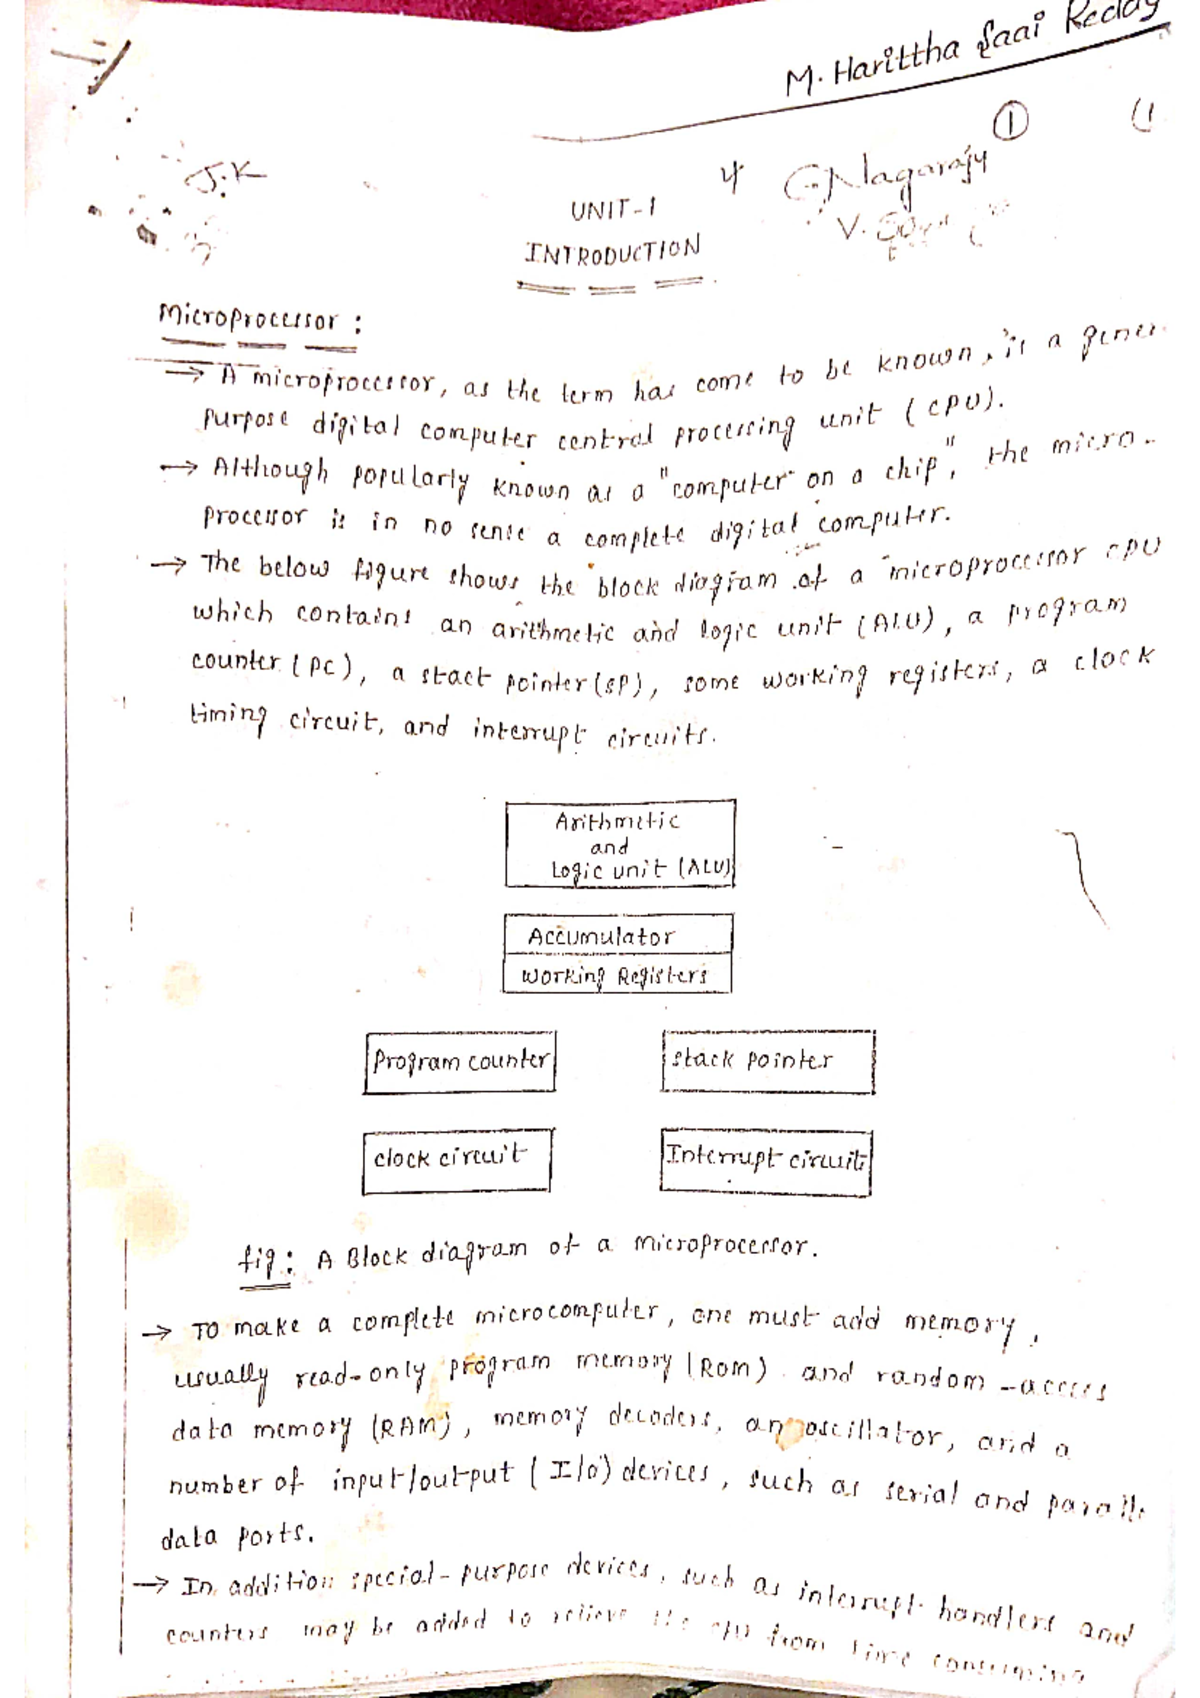 M. Harittha Saai Reddy
1
J.K
G. Nagaraju
UNIT-1
V.
INTRODUCTION
Microprocessor :
→ A microprocessor, as the term has come to be known, is a gener
purpose digital computer central processing unit (CPU).
→ Although popularly known as a "computer on a chip", the micro-
processor is in no sense a complete digital computer.
→ The below figure shows the block diagram of a microprocessor CPU
which contains an arithmetic and logic unit (ALU), a program
counter (PC), a stact pointer (SP), some working registers, a clock
timing circuit, and interrupt circuits.
Arithmetic
and
Logic unit (ALU)
Accumulator
Working Registers
Program counter
stack pointer
clock circuit
Interrupt circuits
fig: A Block diagram of a microprocessor.
→ To make a complete microcomputer, one must add memory,
usually read-only program memory (ROM) and random-access
data memory (RAM), memory decoders, an oscillator, and a
number of input/output (I/O) devices, such as serial and parall
data ports.
→ In addition special-purpose devices, such as interrupt handlers and
counters may be added to relieve the CPU from time consuming